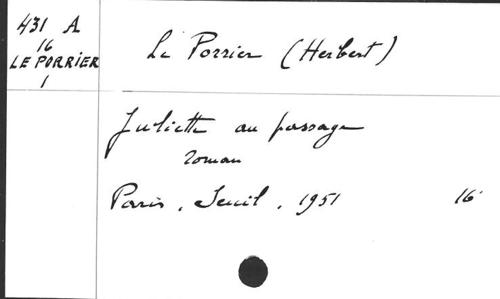 431 A
16
LE PORRIER
1
Le Porrier (Herbert)
Juliette au passage
roman
Paris, Seuil, 1951 16°